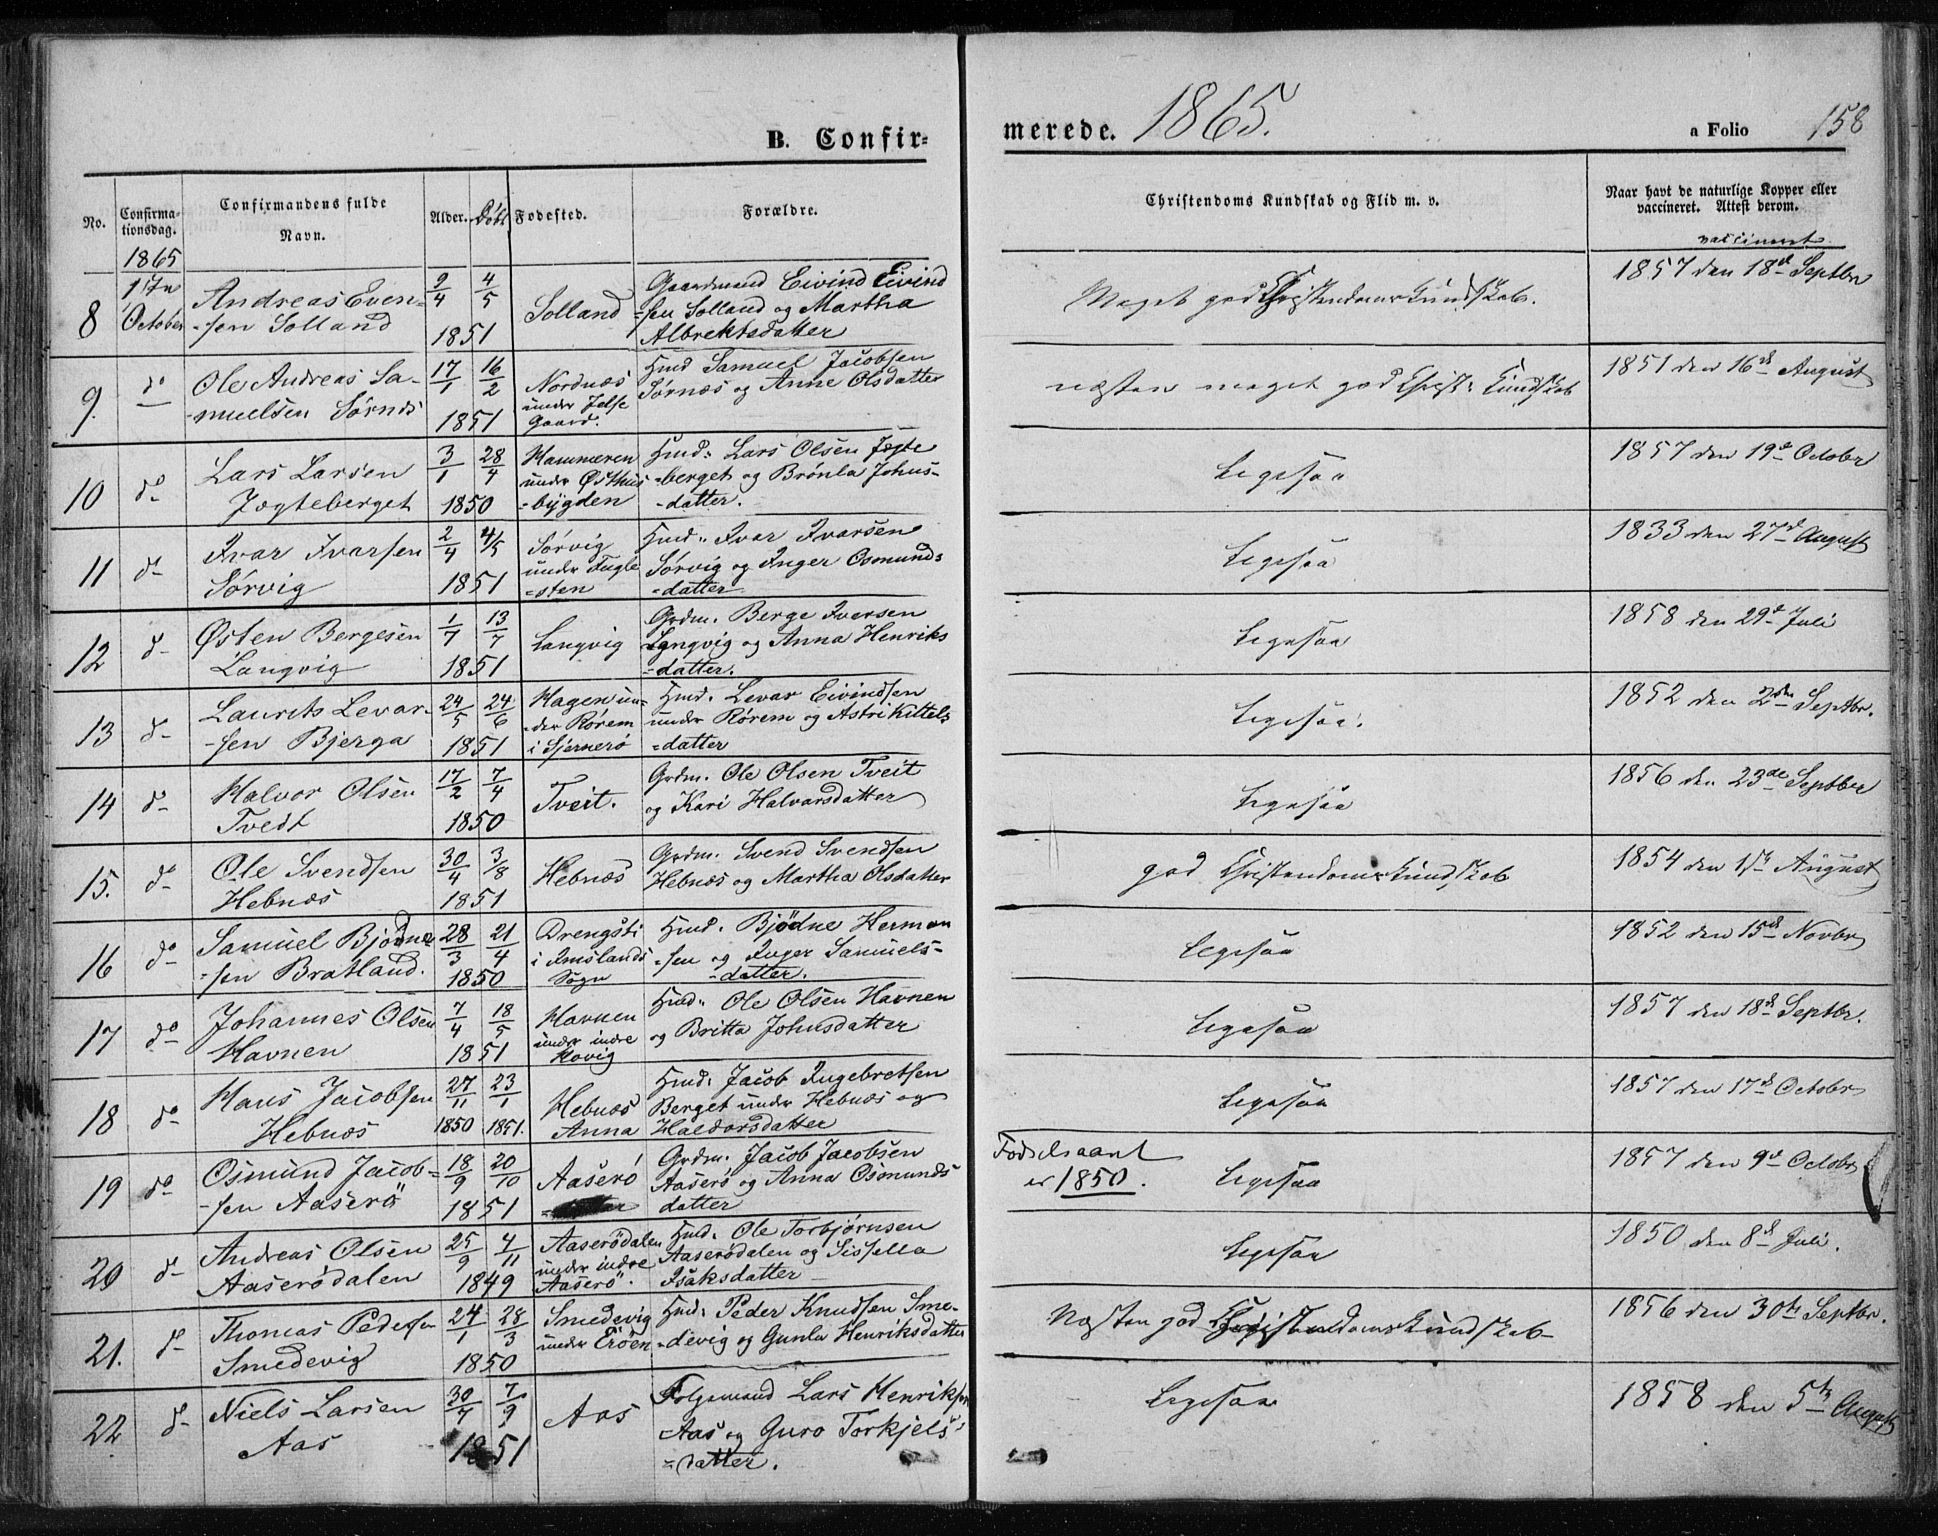 B. Confir-
merede. 1865.
a Folio 158
No.
Confirma-
tionsdag.
Confirmandens fulde
Navn.
Alder.
Døbt
Fødested.
Forældre.
Christendoms Kundskab og Flid m. v.
Naar havt de naturlige Kopper eller
vaccineret. Attest derom.
vaccineret
1865
8
1ste
October
Andreas Even-
-sen Solland
9/4 4/5
1851
Solland
Gaardmand Eivind Eivind
-sen Solland og Martha
Albrektsdatter
Meget god Christendomskundskab.
1857 den 18de Septbr
9.
do
Ole Andreas Sa-
-muelsen Sørnæs
17/1 16/2
1851
Nordnæs
under Jelse
Gaard.
Hmd Samuel Jacobsen
Sørnæs og Anne Olsdatter
næsten meget god Christ: Kundskab
1851 den 16de August
10
do
Lars Larsen
Jogteberget
3/1 28/4
1850
Hammeren
under Østhus
-bygden
Hmd: Lars Olsen Jogte
-berget og Brønla Johns-
-datter.
Ligesaa
1857 den 19de Octobr
11
do
Ivar Ivarsen
Sørvig
2/4 4/5
1851
Sørvig
under Fugle
-sten
Hmd: Ivar Ivarsen
Sørvig og Inger Osmunds-
-datter
Ligesaa
1833 den 27de August
12
do
Østen Bergesen
Langvig
1/7 13/7
1851
Langvig
Grdm. Berge Iversen
Langvig og Anna Henriks
-datter.
Ligesaa
1858 den 29de Juli
13
do
Laurits Levar-
-sen Bjerga
24/5 24/6
1851
Hagen un-
-der Rørem
i Sjernerø
Hmd. Levar Eivindsen
under Rørem og Astri Kittels
-datter
Ligesaa.
1852 den 2den Septbr.
14
do
Halvor Olsen
Tvedt
17/2 7/4
1850
Tveit.
Grdm. Ole Olsen Tveit
og Kari Halvarsdatter
Ligesaa
1856 den 23de Septbr
15.
do
Ole Svendsen
Hebnæs
30/4 3/8
1851
Hebnæs
Grdm. Svend Svendsen
Hebnæs og Martha Olsdatter
god Christendomskundskab
1854 den 1ste August
16
do
Samuel Bjødne
-sen Bratland.
28/3 21/4
1850
Drengsti
i Imslands
Sogn
Hmd. Bjødne Herman
-sen og Inger Samuels-
-datter.
Ligesaa
1852 den 15de Novbr
17
do
Johannes Olsen
Havnen
7/4 18/5
1851
Havnen
under indre
Hovig
Hmd: Ole Olsen Havnen
og Britta Johnsdatter
Ligesaa
1857 den 18de Septbr.
18
do
Hans Jacobsen
Hebnæs
27/11 23/1
1850 1851.
Hebnæs
Hmd: Jacob Ingebretsen
Berget under Hebnæs og
Anna Haldorsdatter
Ligesaa
1857 den 17de Octobr
19
do
Osmund Jacob-
-sen Aaserø
18/9 20/10
1851
Aaserø
Grdm. Jacob Jacobsen
Aaserø og Anna Osmunds
datter
Fødselsaaret
er 1850.
Ligesaa
1857 den 9de Octobr
20
do
Andreas Olsen
Aaserødalen
25/9 4/11
1849
Aaserødalen
under indre
Aaserø.
Hmd. Ole Torbjørnsen
Aaserødalen og Sissella
Isaksdatter
Ligesaa
1850 den 8de Juli.
21.
do
Thomas Pedersen
Smedevig
24/1 28/3
1850
Smedevig
under Erøen
Hmd: Peder Knudsen Sme-
-devig og Gunla Henriksdatter
Næsten god Christendomskundskab-
1856 den 30te Septbr.
22
do
Niels Larsen
Aas
30/7 7/9
1851
Aas
Folgemand Lars Henriksen
Aas og Guro Torkjels-
-datter.
Ligesaa
1858 den 5te August